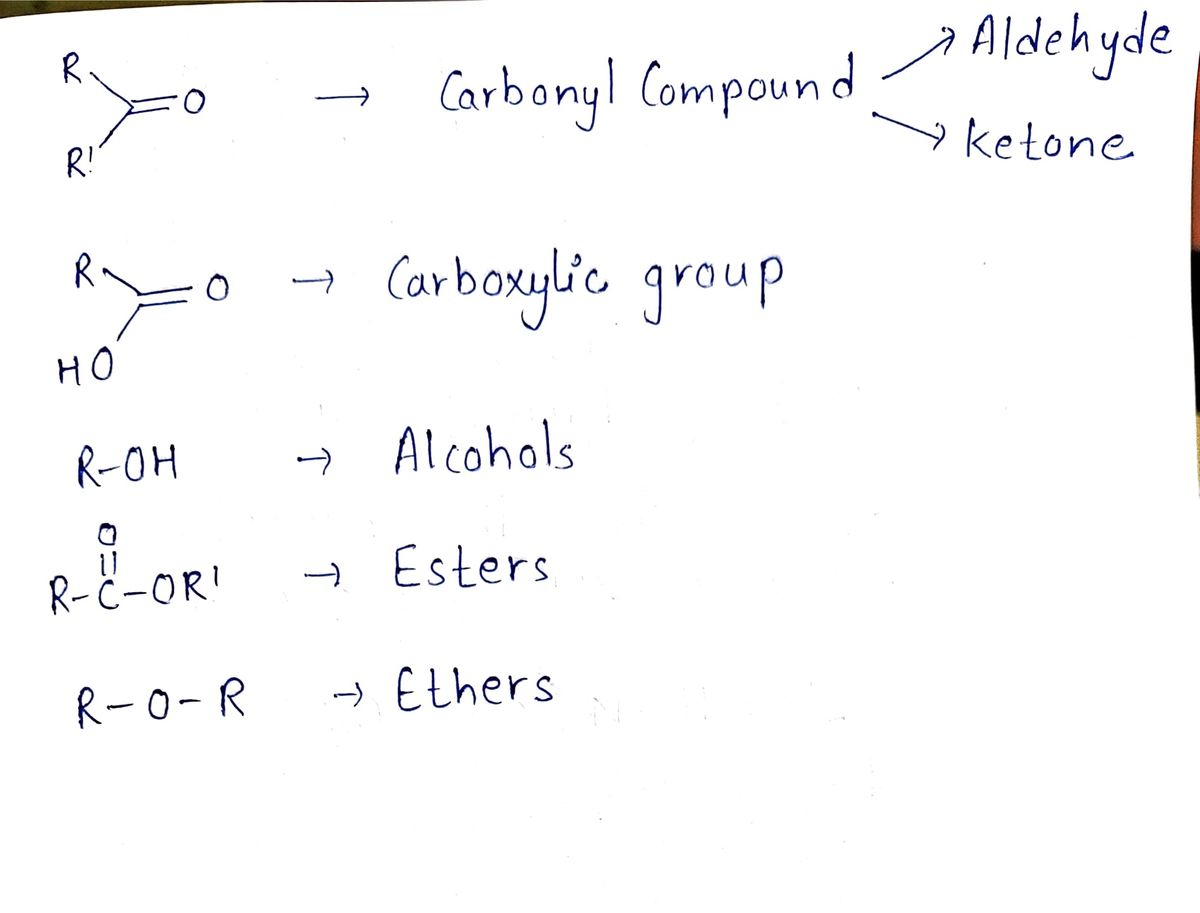 R
=O → Carbonyl Compound → Aldehyde
R' → ketone
R
=O → Carboxylic group
HO
R-OH → Alcohols
O
||
R-C-OR' → Esters
R-O-R → Ethers